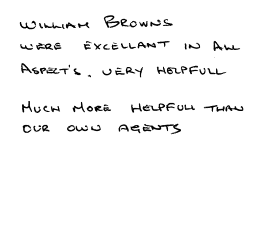 WILLIAM BROWNS
WERE EXCELLANT IN ALL
ASPECT'S. VERY HELPFULL
MUCH MORE HELPFULL THAN
OUR OWN AGENTS